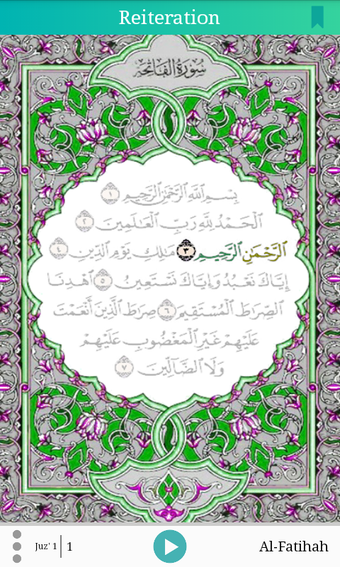 Reiteration
سورة الفاتحة
بِسْمِ ٱللَّهِ ٱلرَّحْمَٰنِ ٱلرَّحِيمِ ١
ٱلْحَمْدُ لِلَّهِ رَبِّ ٱلْعَٰلَمِينَ ٢
ٱلرَّحْمَٰنِ ٱلرَّحِيمِ ٣ مَٰلِكِ يَوْمِ ٱلدِّينِ ٤
إِيَّاكَ نَعْبُدُ وَإِيَّاكَ نَسْتَعِينُ ٥ ٱهْدِنَا
ٱلصِّرَٰطَ ٱلْمُسْتَقِيمَ ٦ صِرَٰطَ ٱلَّذِينَ أَنْعَمْتَ
عَلَيْهِمْ غَيْرِ ٱلْمَغْضُوبِ عَلَيْهِمْ
وَلَا ٱلضَّآلِّينَ ٧
Juz' 1 | 1
Al-Fatihah